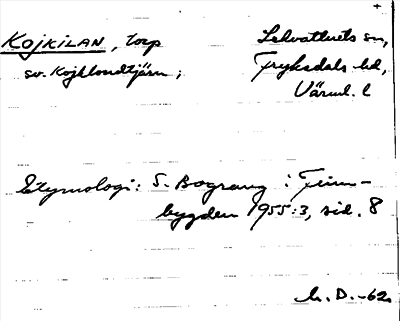 KOJKILAN, torp
sv. Kojklandtjärn;
Lekvattnets sn,
Fryksdals hd,
Värml. l
Etymologi: S. Bograng i Finn-
bygden 1955:3, sid. 8
M. D. -62